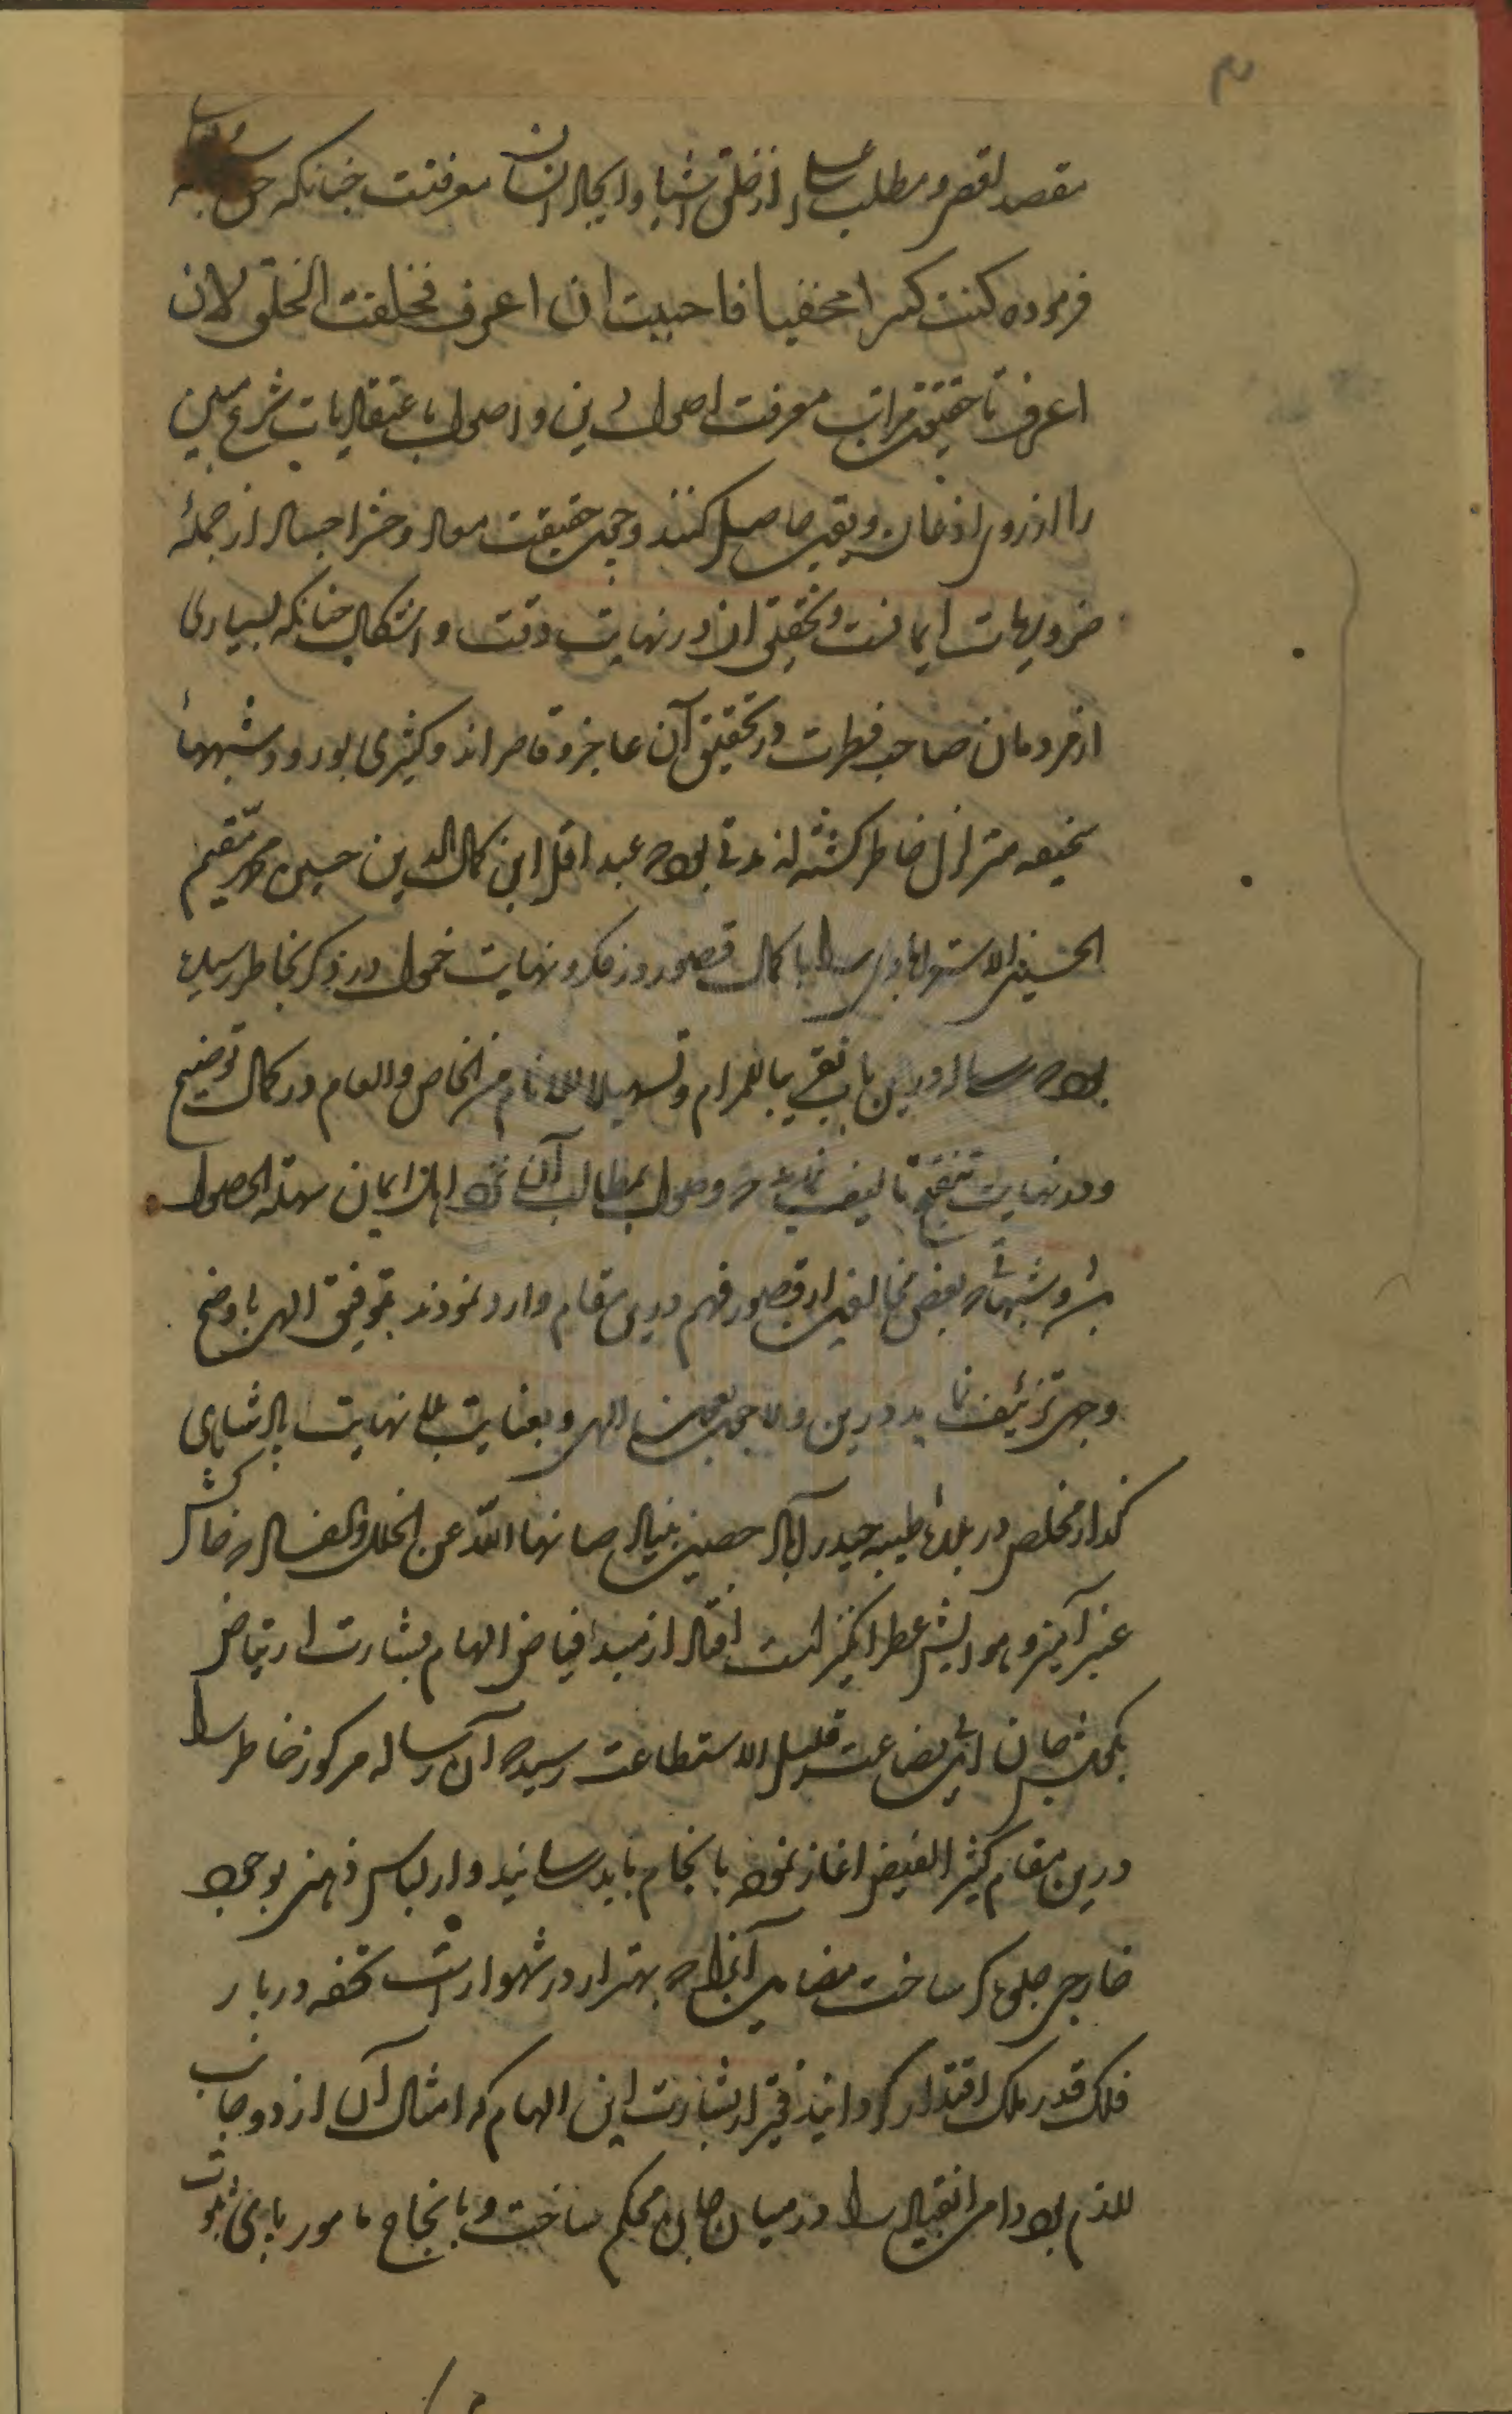 ۳
مقصد اقصی و مطلب اعلی از خلق اشیا و ایجاد انسان معرفتست چنانکه حق سبحانه
فرموده کنت کنزا مخفیا فاحببت ان اعرف فخلقت الخلق لان
اعرف تا حقیقت مراتب معرفت اصول دین و اصول اعتقادیات شرع مبین
را از روی اذعان و یقین حاصل کنند و چون حقیقت معاد و حشر اجساد از جملهٔ
ضروریات ایمانست و تحقیق ان در نهایت دقت و اشکال چنانکه بسیاری
از مردمان صاحب فطرت در تحقیق آن عاجز و قاصر اند و کثیری بورود شبههاء
سخیفه متزلزل خاطر گشته اند مدتی بود که عبد اقل ابن کمال الدین حسین محمد مقیم
الحسینی الاسترابادی را با کمال قصور در فکر و نهایت خمول در ذکر بخاطر رسیده
بود که رساله درین باب تقریبا للمرام و تسهیلا للانام من الخاص و العام در کمال توضیح
و در نهایت تنقیح تالیف نماید که وصول بمطالب آن نزد اهل ایمان سهلة الحصول
باشد و شبهاتی که بعض مخالفین از قصور فهم درین مقام وارد نمودند بتوفیق الهی باوضح
وجهی تزئیف نماید درین ولا چون بعون الهی و بعنایت بلا نهایت پادشاهی
گذار مخلص در بلدهٔ طیبه حیدراباد حصین بنیاد صانها الله عن الخلل و الفساد که خاکش
عنبر آمیز و هوایش عطر انگیز است افتاد از مبدا فیاض الهام بشارت ارتیاض
بگوش جان این بضاعت قلیل الاستطاعت رسید که آن رساله مرکوز خاطر را
درین مقام کثیر الفیض اغاز نموده بانجام باید رسانید و از لباس ذهنی بوجود
خارجی جلوه گر ساخت مضامین آنرا که بهتر از در شهوار است تحفه دربار
فلک قدر ملک اقتدار گردانید فقیر از بشارت این الهام که امثال آن از دو جانب
لازم بود دامن انقیاد را در میان جان محکم ساخت و بانجاح مامور بپای ثبوت